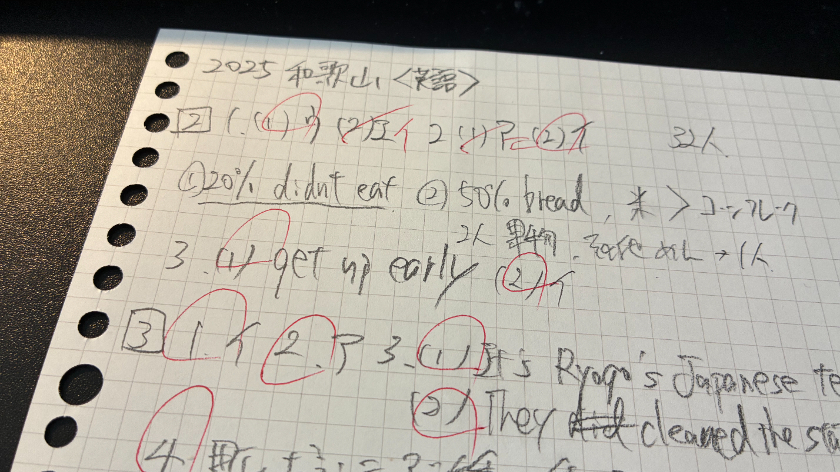 2025 和歌山 <英語>
2 1.(1)ウ (2)エイ 2 (1)ア (2)イ 32人
①20% didn't eat ② 50% bread, 米 > コーンフレーク
2人 果物,
3.(1) get up early (2)イ
3 1.イ 2.ア 3.(1) It's Ryogo's Japanese te
(2) They did cleaned the sta
4.